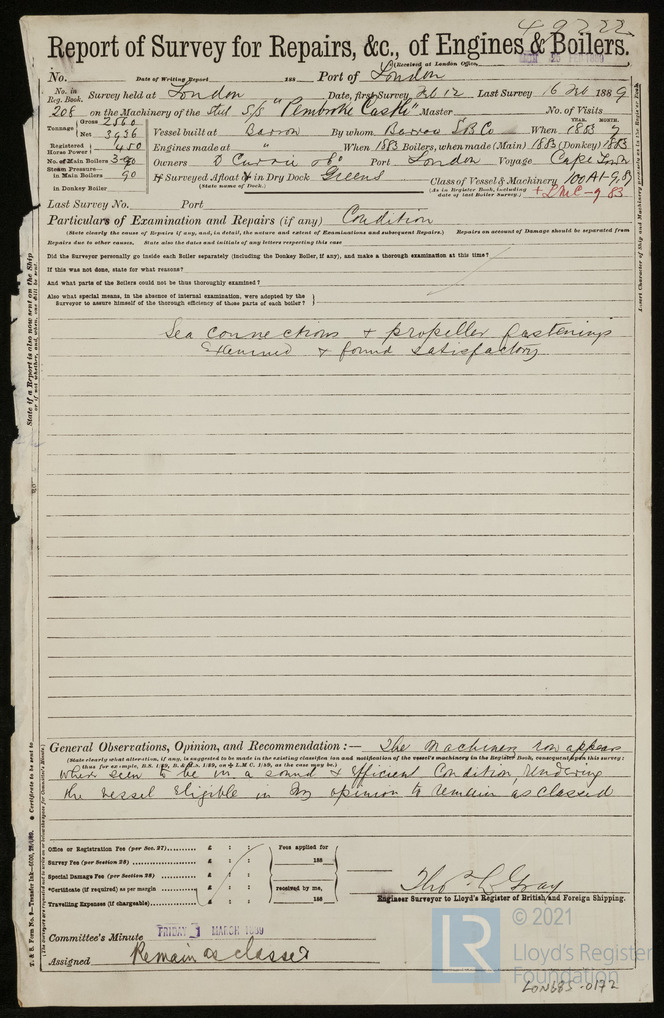 49222
Report of Survey for Repairs, &c., of Engines & Boilers.
(Received at London Office
No. Date of Writing Report 188 Port of London
No. in Reg. Book. Survey held at London Date, first Survey Feb 12 Last Survey 16 Feb 1889
208 on the Machinery of the Steel S/S "Pembroke Castle" Master No. of Visits
Tonnage Gross 2560 Net 3936 Vessel built at Barrow By whom Barrow S.B. Co When YEAR. 1883 MONTH. 9
Registered Horse Power 450 Engines made at " When 1883 Boilers, when made (Main) 1883 (Donkey) 1883
No. of Main Boilers 3 Owners D Currie & Co Port London Voyage Cape
Steam Pressure in Main Boilers 90 If Surveyed Afloat or in Dry Dock Greens Class of Vessel & Machinery 100A1-9,83
in Donkey Boiler (State name of Dock.) (As in Register Book, including date of last Boiler Survey.) + LMC-9 83
Last Survey No. Port
Particulars of Examination and Repairs (if any) Condition
(State clearly the cause of Repairs if any, and, in detail, the nature and extent of Examinations and subsequent Repairs.) Repairs on account of Damage should be separated from
Repairs due to other causes. State also the dates and initials of any letters respecting this case
Did the Surveyor personally go inside each Boiler separately (including the Donkey Boiler, if any), and make a thorough examination at this time?
If this was not done, state for what reasons?
And what parts of the Boilers could not be thoroughly examined?
Also what special means, in the absence of internal examination, were adopted by the
Surveyor to assure himself of the thorough efficiency of those parts of each boiler?
Sea connections & propeller fastenings
Examined & found satisfactory
General Observations, Opinion, and Recommendation:— The Machinery now appears
(State clearly what alteration, if any, is suggested to be made in the existing classification and notification of the vessel's machinery in the Register Book, consequent upon this survey;
thus for example, B.S. 1/89, B. & M.S. 1/89, or + L M C. 1/89, as the case may be.)
when seen to be in a sound & efficient condition, rendering
the vessel eligible in my opinion to remain as classed
Office or Registration Fee (per Sec. 27) £ : : Fees applied for
Survey Fee (per Section 28) £ : : 188
Special Damage Fee (per Section 28) £ : :
*Certificate (if required) as per margin £ : : received by me,
Travelling Expenses (if chargeable) £ : : 188
Thos L Gray
Engineer Surveyor to Lloyd's Register of British and Foreign Shipping.
Committee's Minute FRIDAY 1 MARCH 1889
Assigned Remain as classed
LR © 2021 Lloyd's Register Foundation
LON685-0172
State if a Report is also now sent on the Ship
or if not whether, and when, one will be sent
Insert Character of Ship and Machinery precisely as in the Register Book